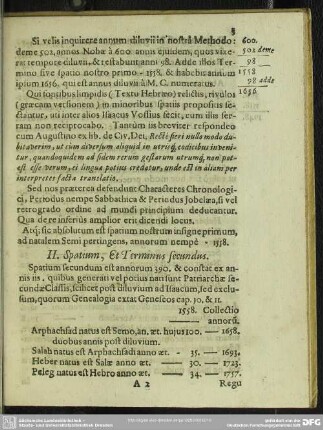 §
Si velis inquirere annum diluvii in nostrâ Methodo: 600.
deme 502. annos Nobæ à 600. annis ejusdem, quos vixe- 502 deme
rat tempore diluvii, & restabunt anni 98. Adde illos Ter- 98
mino sive spatio nostro primo - 1558. & habebis annum 1558
ipsum 1656. qui est annus diluvii à M. C. numeratus. 98 adde
Qui fontibus limpidis (Textu Hebræo) relictis, rivulos 1656
(græcam versionem) in minoribus spatiis propositis se-
ctantur, uti inter alios Isaacus Vossius fecit, cum illis ser-
ram non reciprocabo. Tantùm iis breviter respondeo
cum Augustino ex lib. de Civ. Dei, Recti fieri nullo modo du-
bitaverim, ut cum diversum aliquid in utrisq; codicibus inveni-
tur, quandoquidem ad fidem rerum gestarum utrumq; non pot-
est esse verum, ei lingua potius credatur, unde est in aliam per
interpretes facta translatio.
Sed nos præterea defendunt Characteres Chronologi-
ci, Periodus nempe Sabbathica & Periodus Jobelæa, si vel
retrogrado ordine ad mundi principium deducantur.
Qua de re inferiùs amplior erit dicendi locus.
Atq; sic absolutum est spatium nostrum insigne primum,
ad natalem Semi pertingens, annorum nempe - 1558.
II. Spatium, Et Terminus secundus.
Spatium secundum est annorum 390. & constat ex an-
nis iis, quibus generati vel potius nati sunt Patriarchæ se-
cundæ Classis, scilicet post diluvium ad Isaacum, sed exclu-
sum, quorum Genealogia extat Geneseos cap. 10. & 11.
1558. Collectio
annorũ.
Arphachsad natus est Semo, an. æt. hujus 100. — 1658.
duobus annis post diluvium.
Salah natus est Arphachsadi anno æt. - 35. — 1693.
Heber natus est Salæ anno æt. — 30. — 1723.
Peleg natus est Hebro anno æt. — 34. — 1757.
A 2 Regu